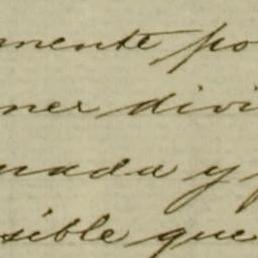 mente po
ner divi
nada y p
sible que